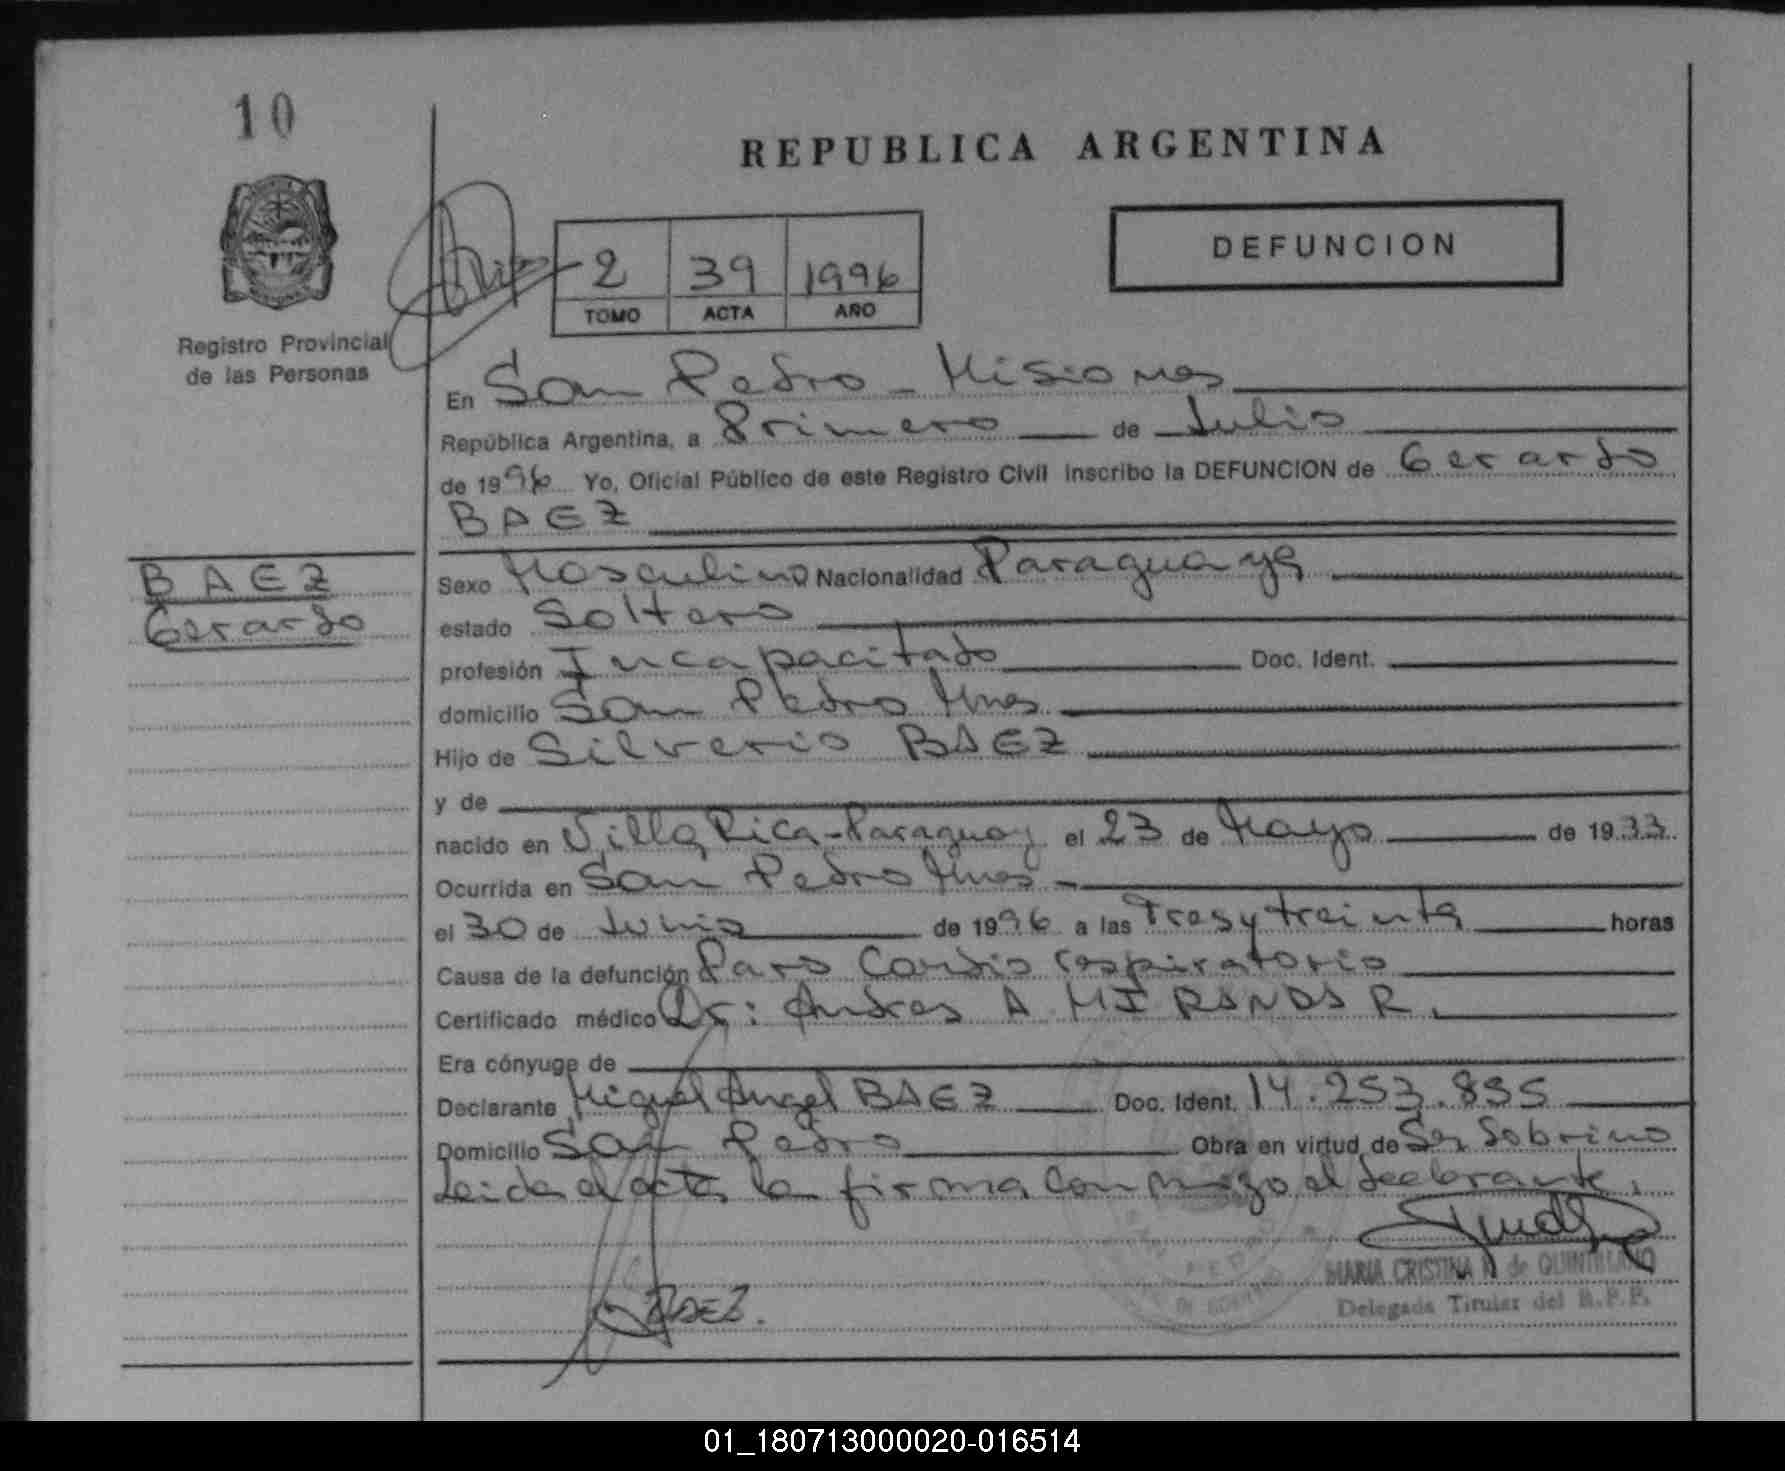 10
REPUBLICA ARGENTINA
DEFUNCION
2 39 1996
TOMO ACTA AÑO
Registro Provincial
de las Personas
En San Pedro - Misiones
República Argentina, a Primero de Julio
de 1996 Yo, Oficial Público de este Registro Civil inscribo la DEFUNCION de Gerardo
BAEZ
BAEZ
Gerardo
Sexo Masculino Nacionalidad Paraguaya
estado Soltero
profesión Incapacitado Doc. Ident.
domicilio San Pedro Mnes
Hijo de Silverio BAEZ
y de
nacido en Villa Rica - Paraguay el 23 de Mayo de 1933
Ocurrida en San Pedro Mnes -
el 30 de Junio de 1996 a las Tres y treinta horas
Causa de la defunción Paro Cardio respiratorio
Certificado médico Dr: Andres A MIRANDA R.
Era cónyuge de
Declarante Miguel Angel BAEZ Doc. Ident. 14.253.835
Domicilio San Pedro Obra en virtud de Ser Sobrino
Leida el acta, la firma conmigo el declarante.
MARIA CRISTINA de QUINTILIANO
Delegada Titular del R.P.P.
BAEZ.
01_180713000020-016514